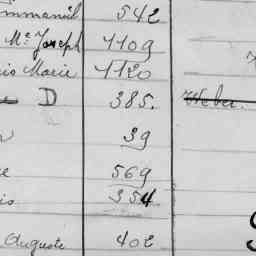 mmanuel 542
Mc Joseph 1109
is Marie 1120
D 385. Weber.
39
e 569
is 354
Auguste 402